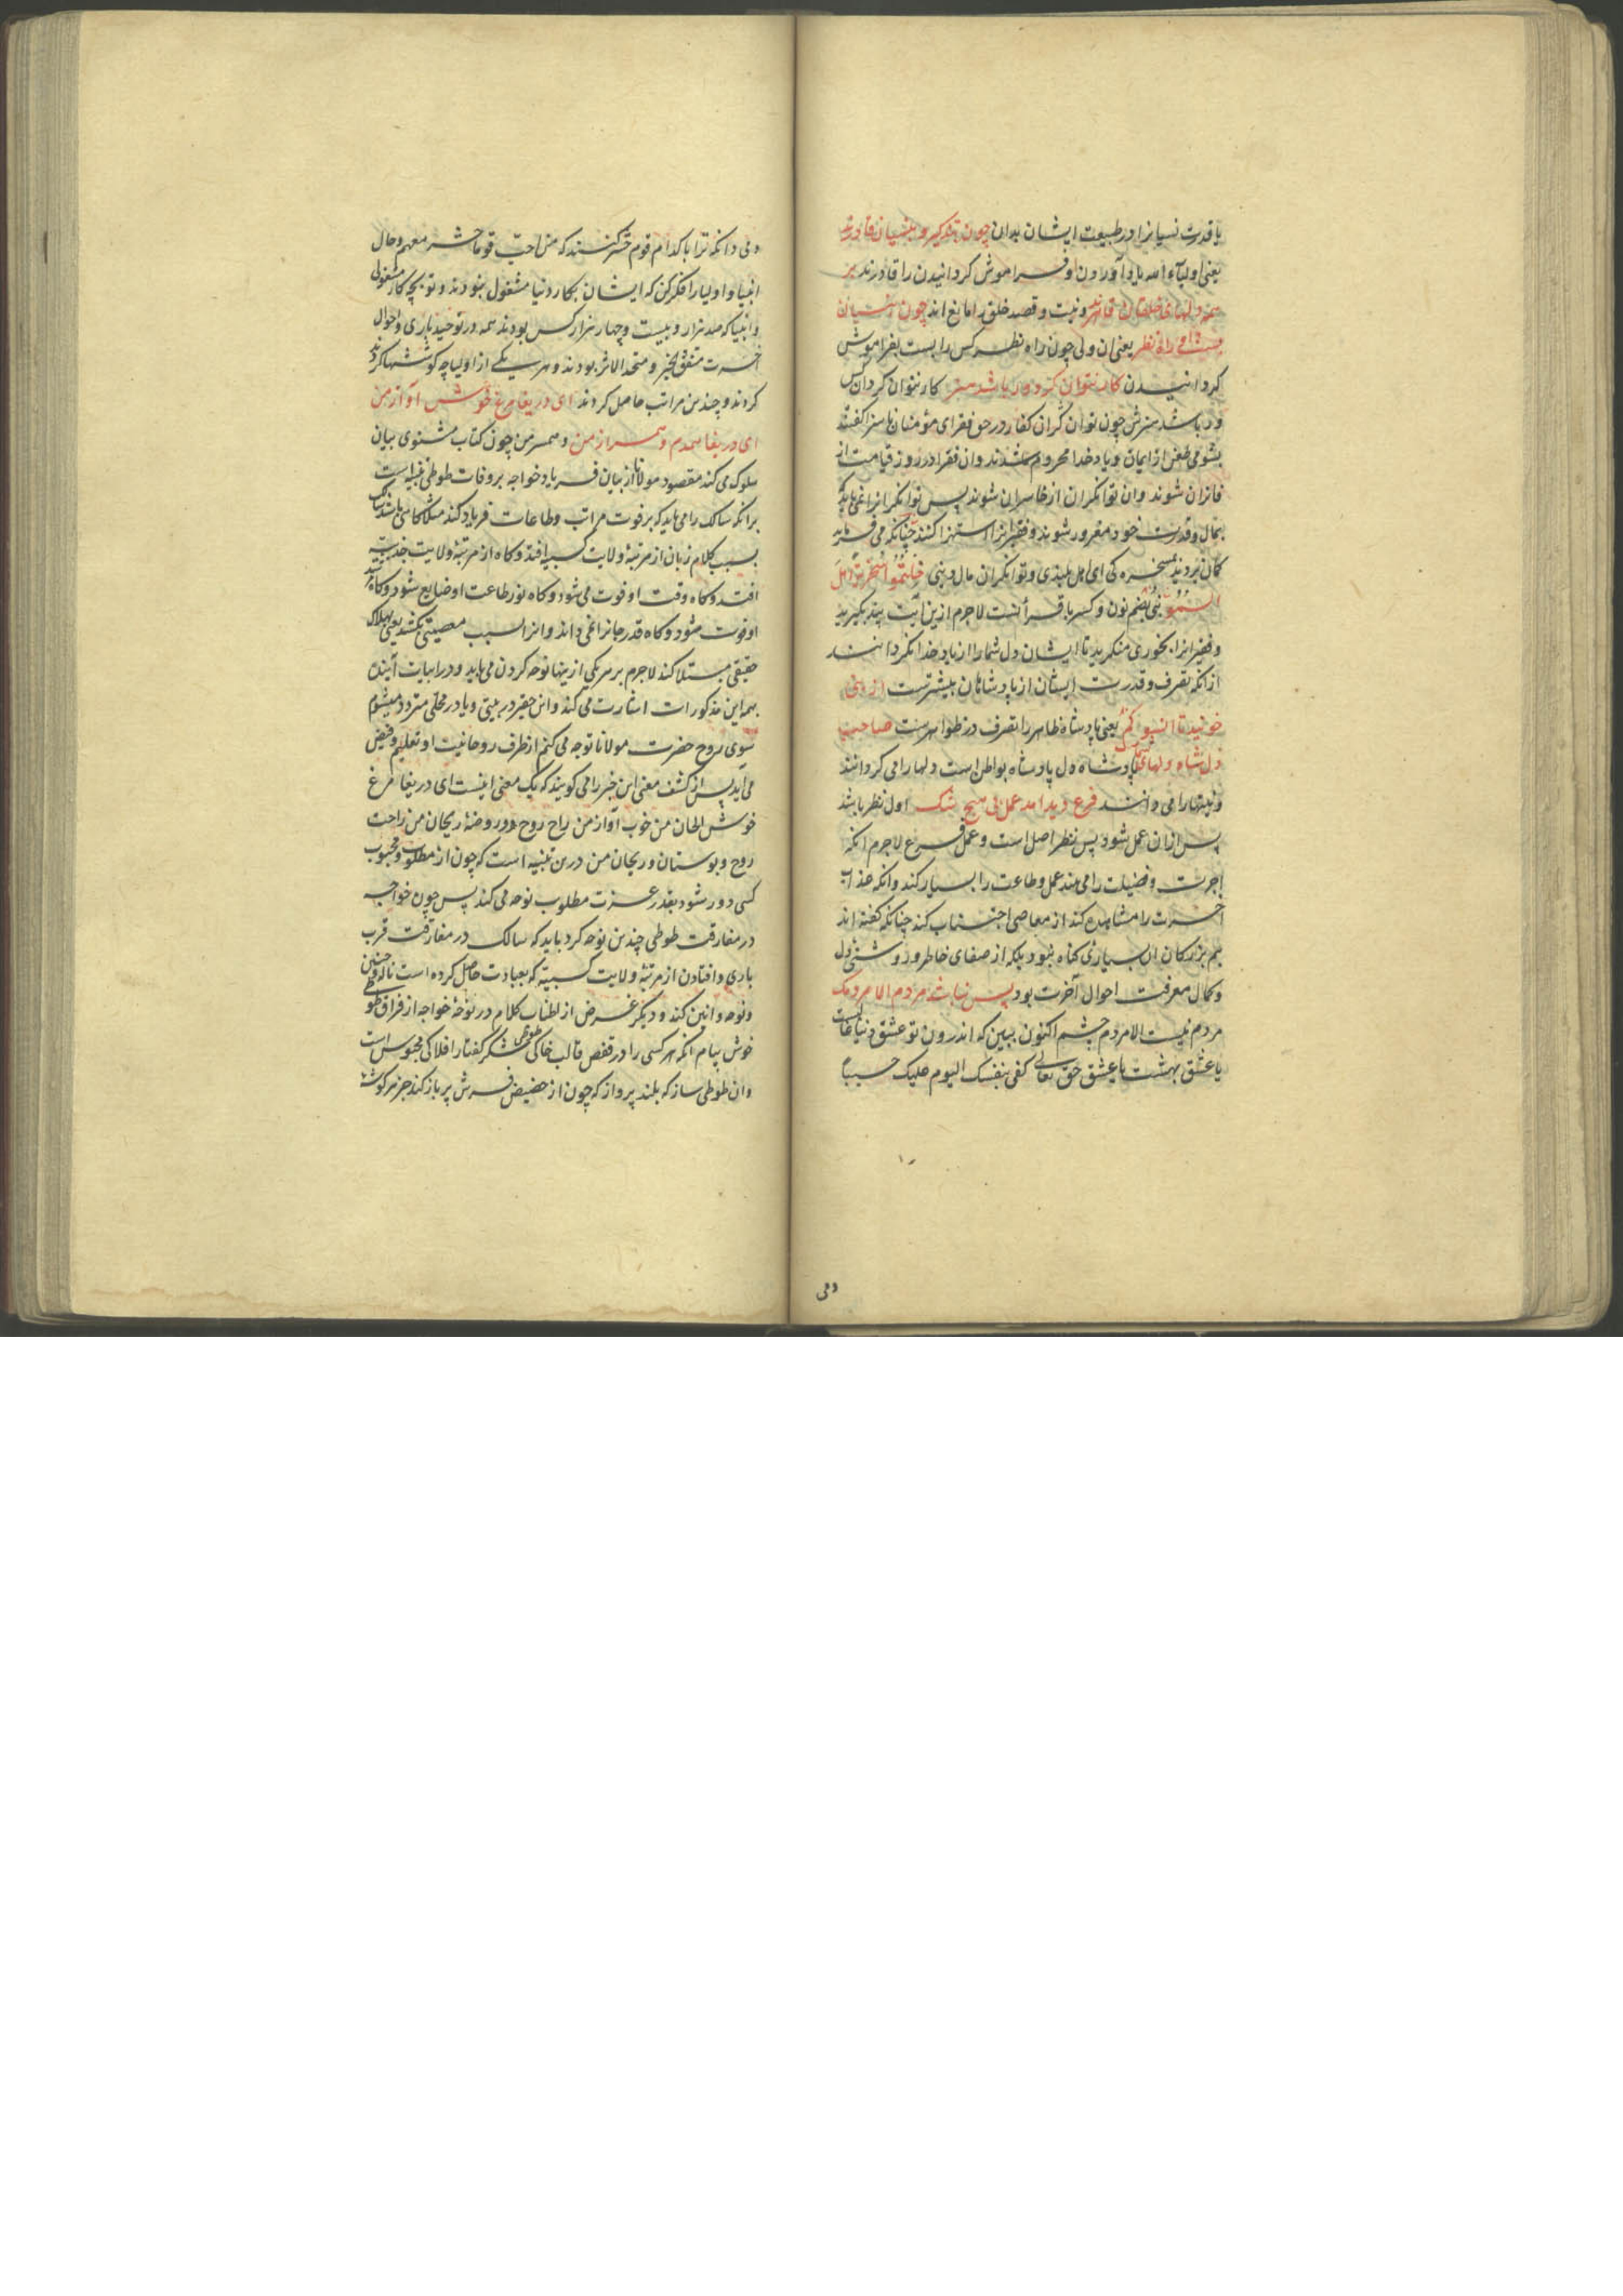 یا قدرت نسیانرا در طبیعت ایشان بدان چون بتذکیر و بنسیان قادرند
یعنی اولیآء الله یاد آوردن و فراموش کردانیدن را قادرند بر
همه دلهای خلقان قاهرند ونیت وقصد خلق را مانع اند چون بنسیان
بست او راه نظر یعنی ان ولی چون راه نظر کس را بست بفراموش
کردانیدن کار نتوان کرد ور باشد هنر کار نتوان کرد ان کس
ور باشد هنرش چون توانکران کفار در حق فقرای مؤمنان ناسزا گفتند
بشومی طعن از ایمان ویاد خدا محروم شدند وان فقرا در روز قیامت از
فائزان شوند وان توانکران از خاسران شوند پس توانکرانرا نمی باید که
بمال وقدرت خود مغرور شوند وفقیرانرا استهزا کنند چنانکه می فرماید
کمان بردید مسخره کی ای اهل بلندی وتوانکران مال دنیی خلتموا سخریة اهل
السمو نبی بضم نون وکسر با قرأنست لاجرم ازین آیت پند بکیرید
وفقیرانرا بخوری منکرید تا ایشان دل شمارا از یاد خدا نکردانند
ازانکه تصرف وقدرت ایشان از پادشاهان بیشترست از نبی
خوانید تا انسوکم یعنی پادشاه ظاهر را تصرف در ظواهرست صاحب
دل شاه دلهای شما پادشاه دل پادشاه بواطن است دلها را می کردانند
ونیتها را می دانند فرع دید امد عمل بی هیچ شک اول نظر باشد
پس ازان عمل شود پس نظر اصل است وعمل فرع لاجرم انکه
اجرت وفضیلت را می بیند عمل وطاعت را بسیار کند وانکه عذاب
آخرت را مشاهده کند از معاصی اجتناب کند چنانکه گفته اند
بیم بزرکان از بسیاری کناه نبود بلکه از صفای خاطر وروشنی دل
وکمال معرفت احوال آخرت بود پس نباشد مردم الا مردمک
مردم نیست الا مردم چشم اکنون ببین که اندرون تو عشق دنیا غالبست
یا عشق بهشت یا عشق حق تعالی کفی بنفسک الیوم علیک حسیبا
ومی
ومی دانکه ترا با کدام قوم حشر کنند که من احب قوما حشر معهم وحال
انبیا واولیا را فکر کن که ایشان بکار دنیا مشغول نبودند وتو بچه کار مشغولی
وانبیا که صد هزار وبیست وچهار هزار کس بودند همه در توحید باری واحوال
آخرت متفق الخبر ومتحد الاثر بودند وهر یکی از اولیا چه کوششها کردند
کردند وچندین مراتب حاصل کردند ای دریغا مرغ خوش آواز من
ای دریغا همدم وهمراز من وهمسر من چون کتاب مثنوی بیان
سلوک می کند مقصود مولانا از بیان فریاد خواجه بر وفات طوطی تنبیه است
برانکه سالک را می باید که بر فوت مراتب وطاعات فریاد کند مثلا کاهی باشد که سالک
بسبب کلام زبان از مرتبۀ ولایت کسبیه افتد وکاه از مرتبۀ ولایت جذبیه
افتد وکاه وقت او فوت می شود وکاه نور طاعت او ضایع شود وکاه
او فوت شود وکاه قدر جانرا نمی داند وانرا بسبب معصیتی بکشد یعنی بهلاک
حقیقی مبتلا کند لاجرم بر هر یکی ازینها نوحه کردن می باید ودر ابیات آینده
بهمه این مذکورات اشارت می کند واین حقیر در بیتی ویا در محلی متردد میشوم
سوی روح حضرت مولانا توجه می کنم از طرف روحانیت او تعلیم وفیض
می آید پس از کشف معنی این خبر را می کویند که یک معنی اینست ای دریغا مرغ
خوش الحان من خوب آواز من راح روح وروضۀ ریحان من راحت
روح وبوستان وریحان من درین تنبیه است که چون از مطلوب ومحبوب
کسی دور شود بقدر عزت مطلوب نوحه می کند پس چون خواجه
در مفارقت طوطی چندین نوحه کرد باید که سالک در مفارقت قرب
باری وافتادن از مرتبۀ ولایت کسبیه که بعبادت حاصل کرده است ناله وحنین
ونوحه وانین کند ودیکر غرض از اطناب کلام در نوحۀ خواجه از فراق طوطی
خوش پیام انکه هر کسی را در قفص قالب خاکی طوطی شکر کفتار افلاکی محبوس است
وان طوطی سازکه بلند پرواز که چون از حضیض فرش پر باز کند جز بر کوشۀ